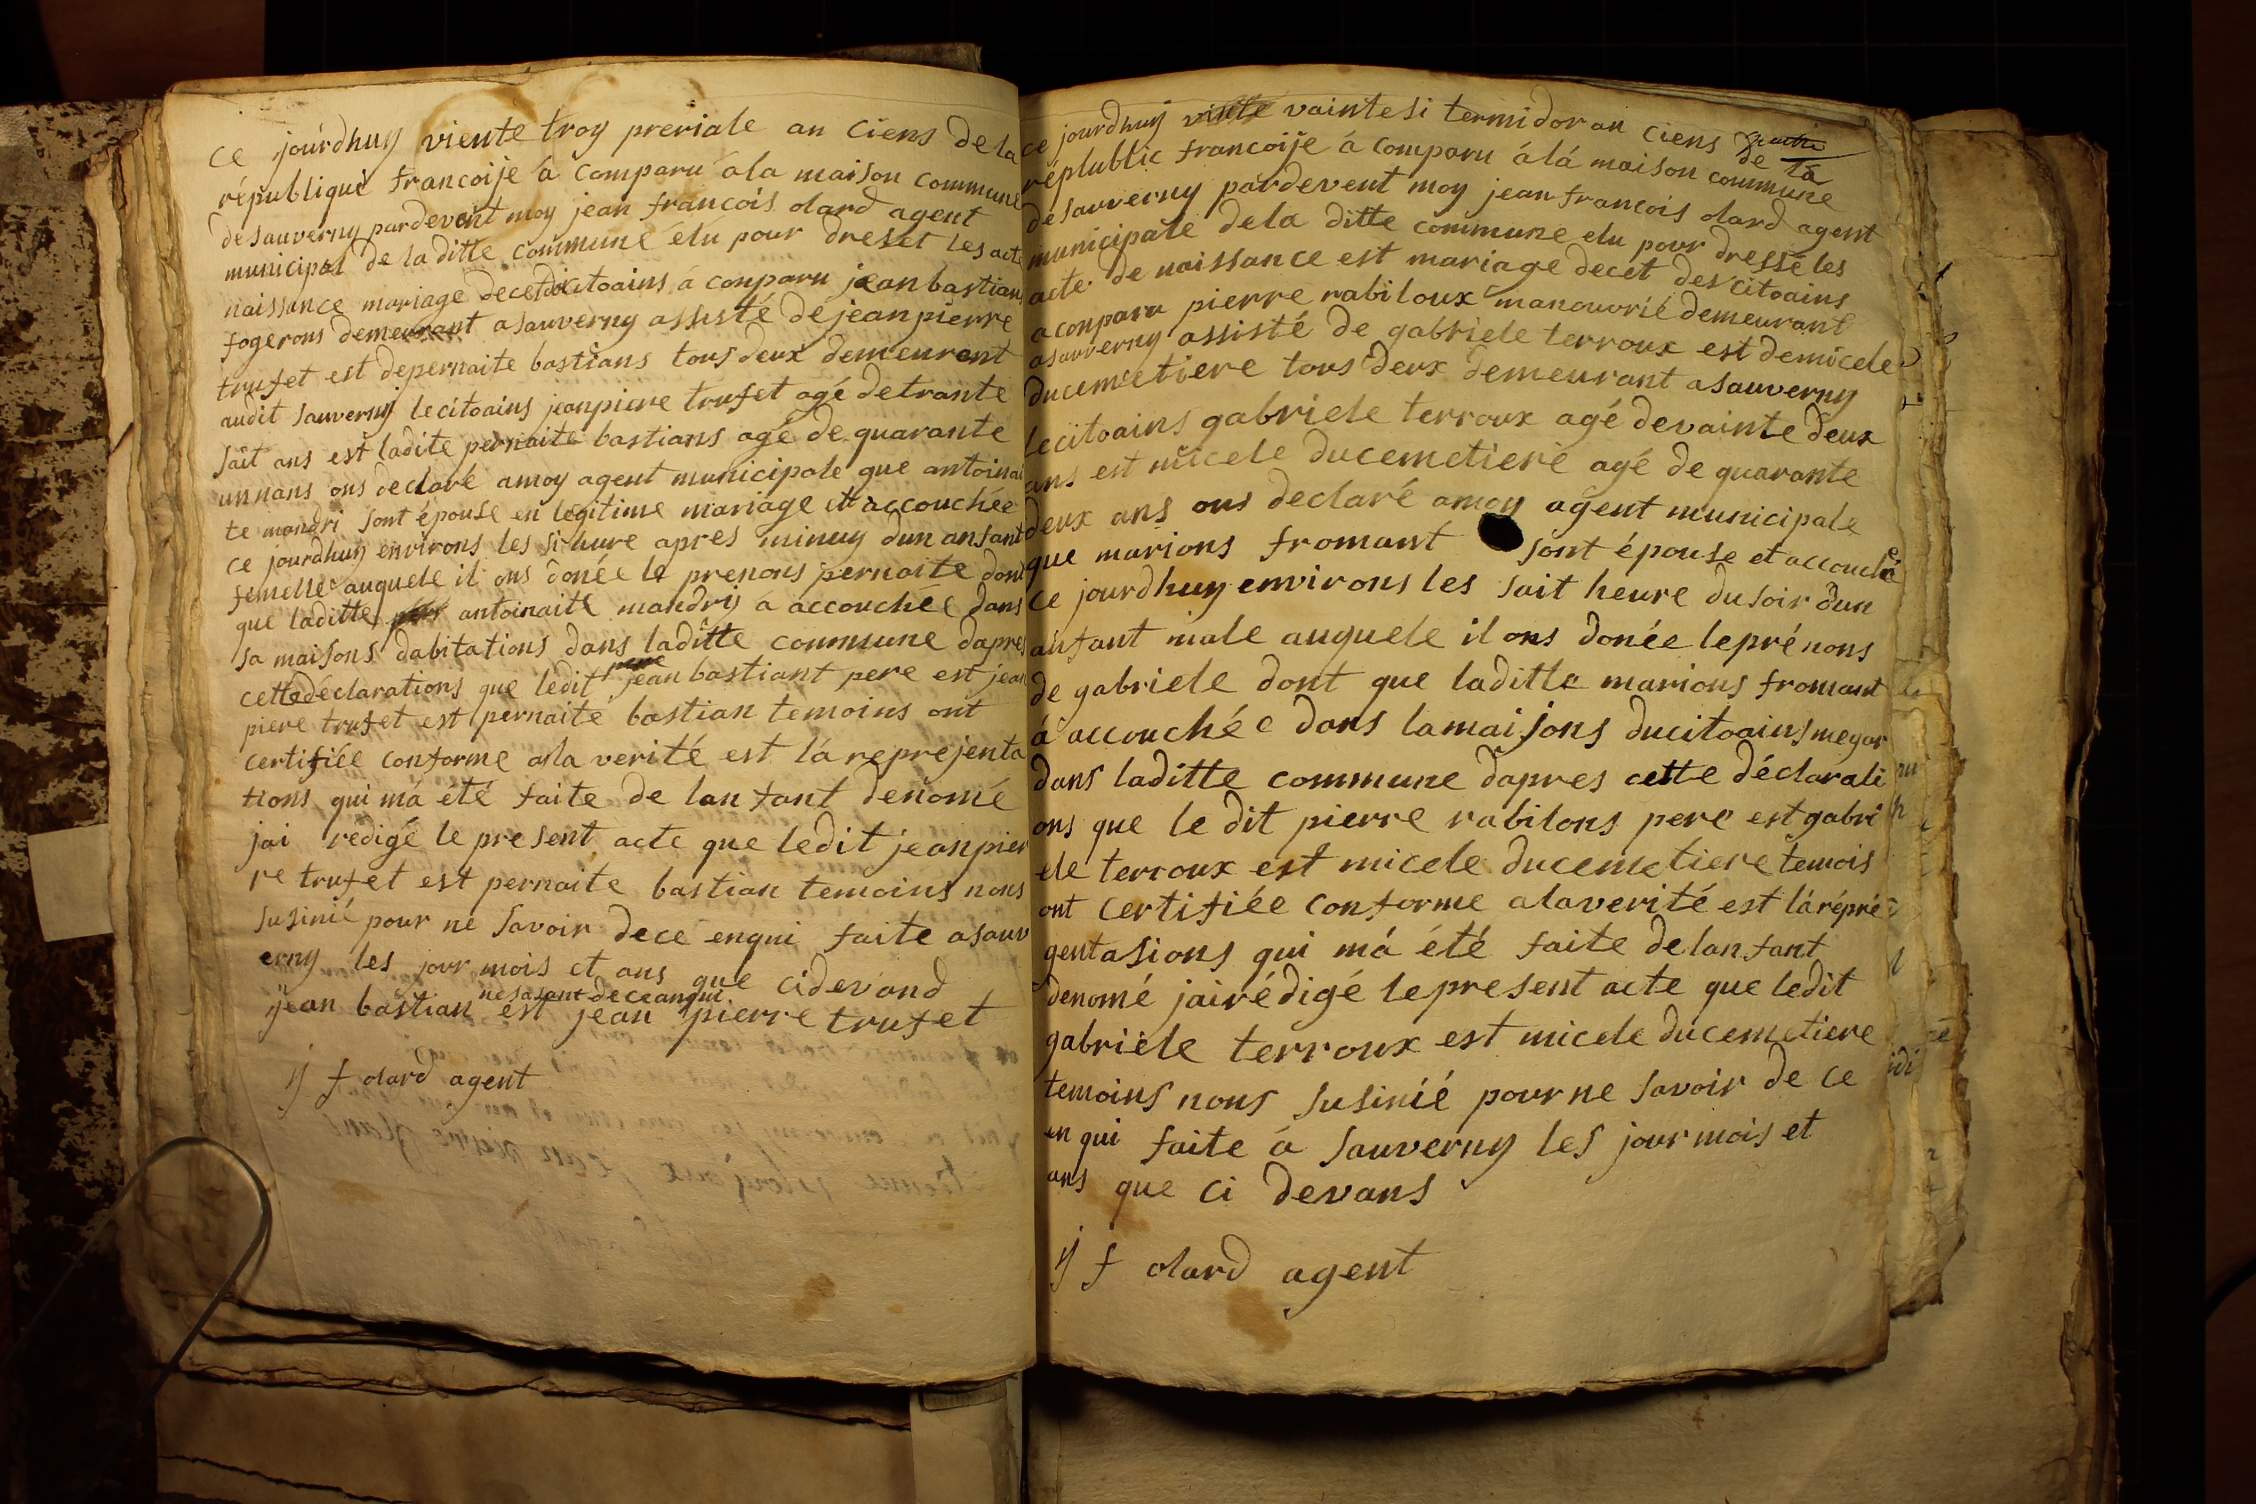 ce jourdhuy viente troy preriale an ciens de la
république francoije á comparu á la maison commune
de sauverny pardevent moy jean francois olard agent
municipal de la ditte commune élu pour dreset les acte
naissance mariage decet citoains á conparu jean bastian
fogerons demeurant a sauverny assisté de jean pierre
trufet est depernaite bastians tous deux demeurant
audit sauverny le citoains jeanpiere trufet agé de trante
sait ans est ladite pernaite bastians agé de quarante
unnans ons declaré amoy agent municipale que antoinai
te mandri sont épouse en legitime mariage et accouchée
ce jourdhuy environs les si hure apres minuy dun anfant
femelle auquele il ons donée le prenons pernaite dont
que laditte antoinaite mandriy á accouchée dans
sa maisons dabitations dans laditte commune dapres
cette déclarations que ledit jean bastiant pere est jean
piere trufet est pernaité bastian temoins ont
certifiée conforme a la verité est lá reprejenta
tions qui má été faite de lanfant denomé
jai redigé le present acte que ledit jeanpier
re trufet est pernaite bastian temoins nons
susinié pour ne savoir dece enqui faite a sauv
erny les jour mois et ans que cidevand
jean bastian est jean pierre trufet
ne savent deceanqui
ij f olard agent
ce jourdhuy vainte si termidor an ciens de la
républic francoije á comparu á lá maison commune
de sauverny pardevent moy jean francois olard agent
municipale dela ditte commune elu pour dressé les
acte de naissance est mariage decet des citoains
a conparu pierre rabiloux manouvrié demeurant
a sauverny assisté de gabriele terroux est demicele
ducemetiere tous deux demeurant a sauverny
le citoains gabriele terroux agé devainte deux
ans est micele ducemetiere agé de quarante
deux ans ons declaré amoy agent municipale
que marions fromant sont épouse et accouché
ce jourdhuy environs les sait heure du soir dun
anfant male auquele il ons donée le prénons
de gabriele dont que laditte marions fromant
á accouchée dans lamaisons ducitoains megar
dans laditte commune dapres cette déclarati
ons que le dit pierre rabilons pere est gabri
ele terroux est micele ducemetiere temois
ont certifiée conforme alaverité est lárépré
gentasions qui má été faite delanfant
denomé jairédigé lepresent acte que ledit
gabriele terroux est micele ducemetiere
temoins nons susinié pour ne savoir de ce
en qui faite á sauverny les jour mois et
ans que ci devans
ij f olard agent